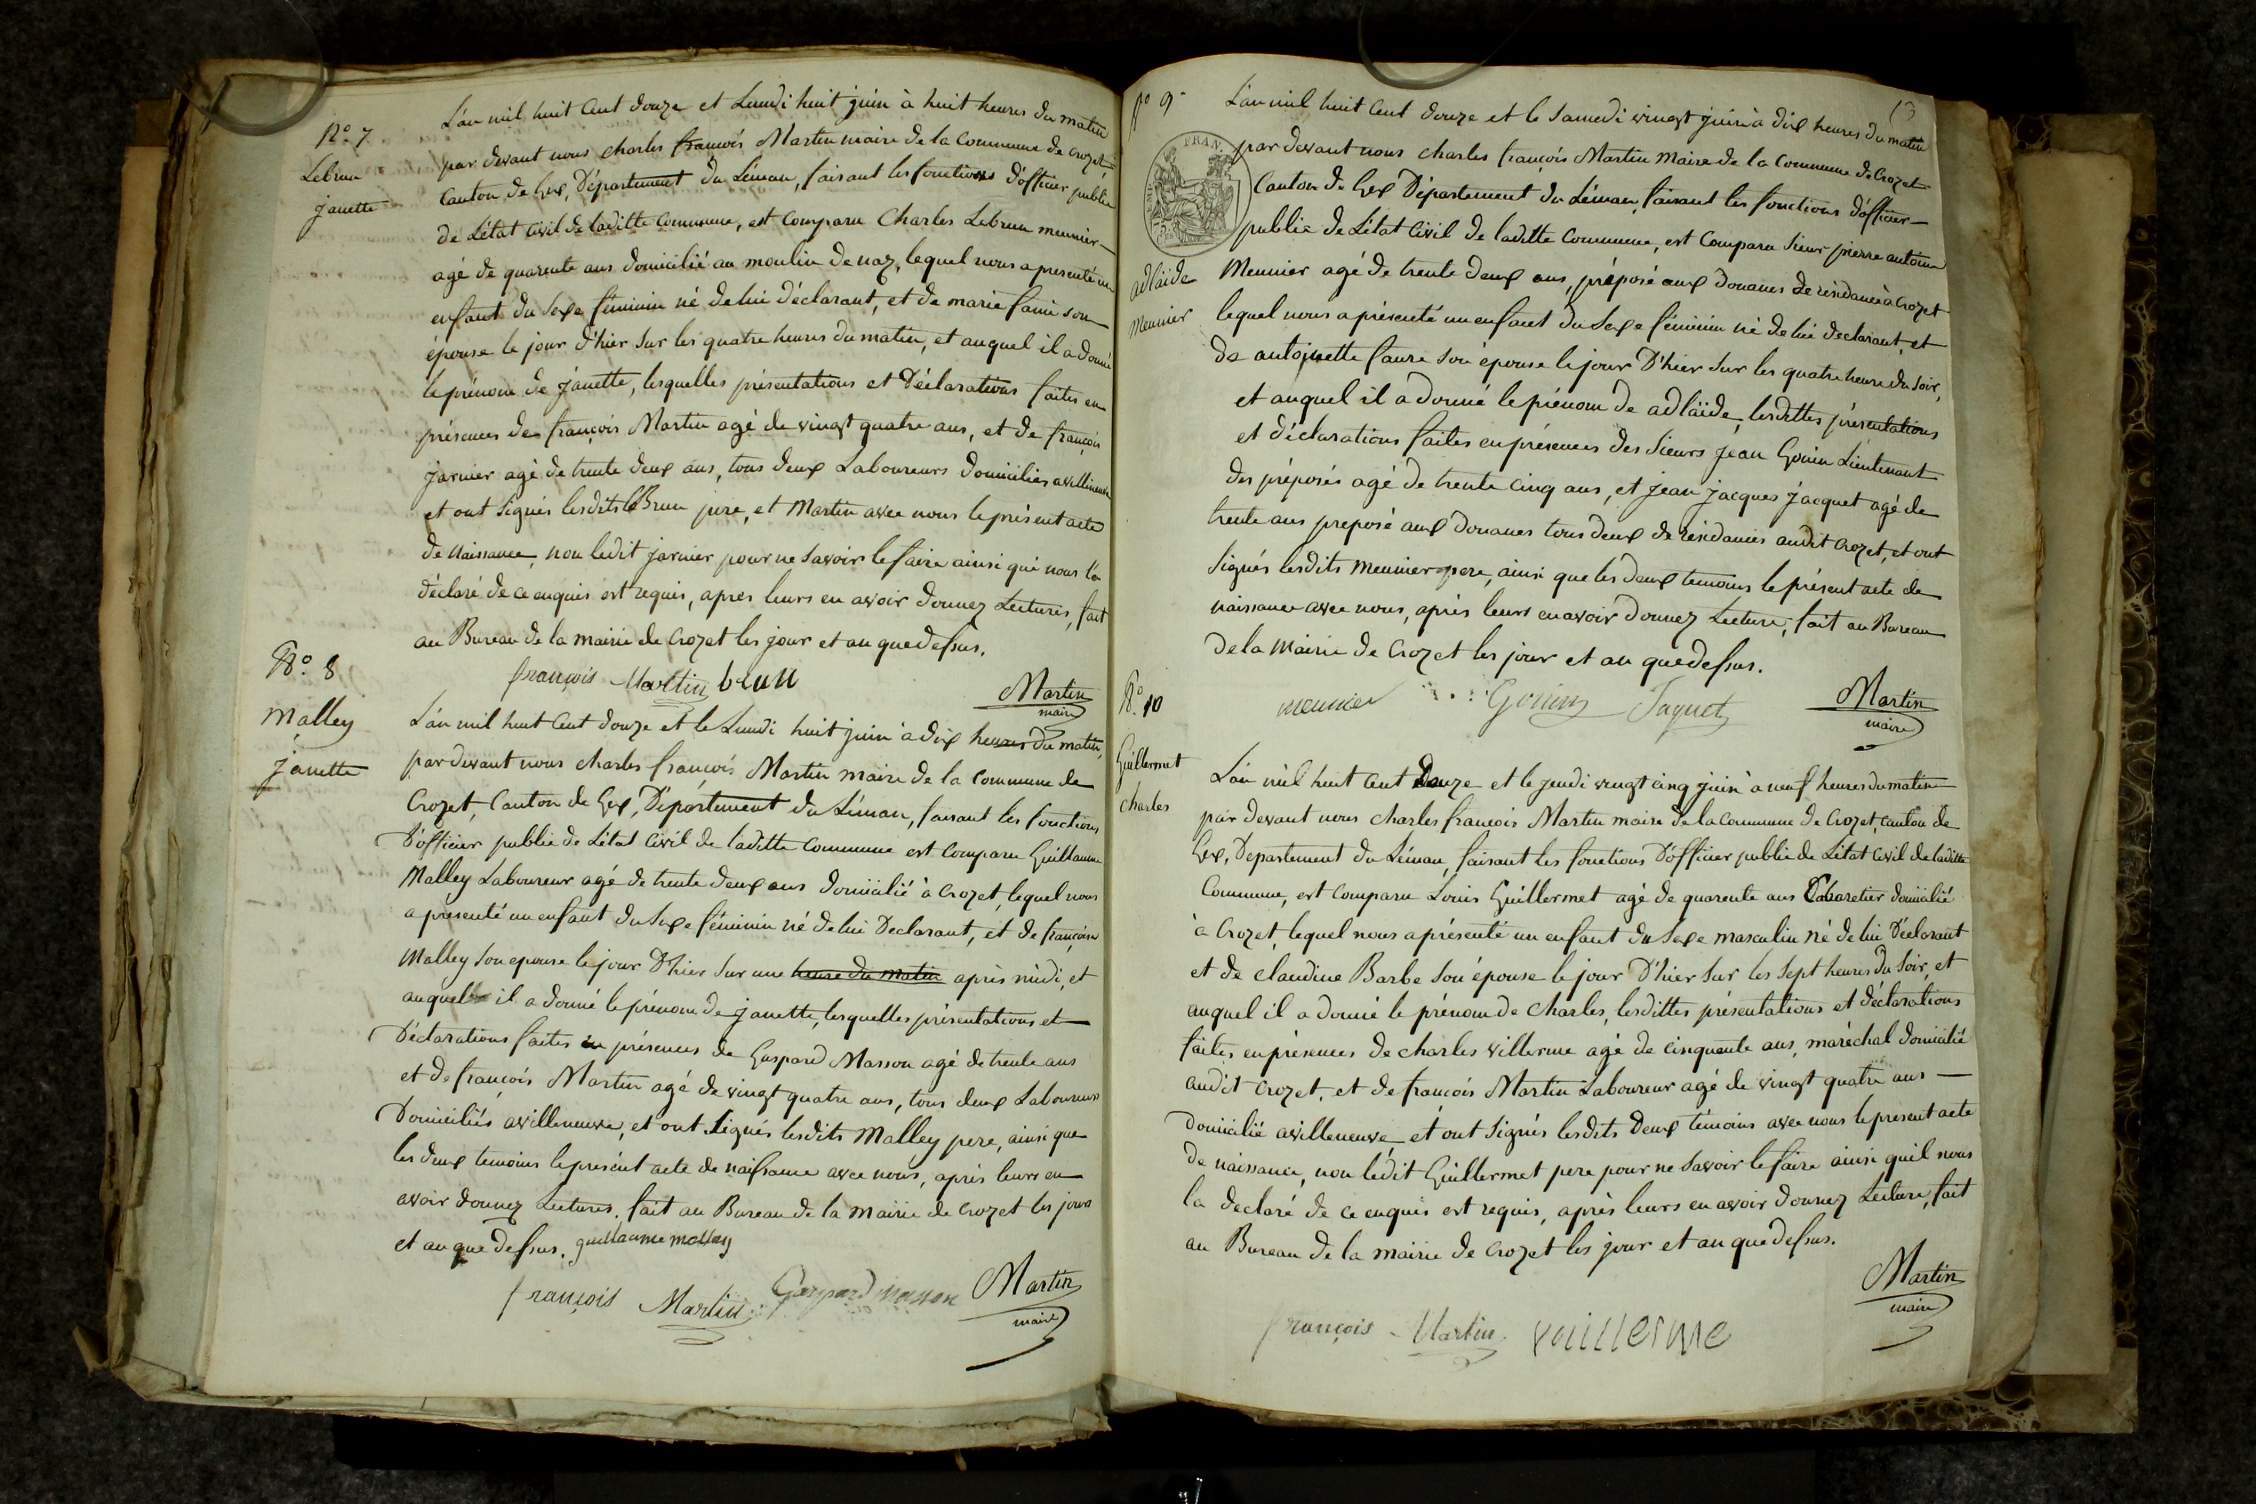 N.o 7
Lebrun
janette
L'an mil huit Cent douze et Lundi huit juin à huit heures du matin
par devant nous charles françois Martin maire de la Commune de Crozet,
Canton de Gex, Département du Léman, faisant les fonctions d'officier public
de L'état Civil de laditte Commune, est Comparu Charles Lebrun meunier
agé de quarente ans domicilié au moulin de naz, lequel nous a presenté un
enfant du Sexe féminin né de lui déclarant, et de marie son
épouse le jour d'hier Sur les quatre heures du matin, et auquel il a donné
le prénom de janette, lesquelles présentations et Déclarations faites en
présences de françois Martin agé de vingt quatre ans, et de françois
jarnier agé de trente deux ans, tous deux Laboureurs domiciliés avilleneuve
et ont Signés lesdits leBrun pere, et Martin avec nous le présent acte
de Naissance, non ledit jarnier pour ne Savoir le faire ainsi qui nous l'a
déclaré de ce enquis est requis, apres leurs en avoir donnez Lectures, fait
au Bureau de la mairie de Crozet les jour et an que dessus.
françois Martin brun
Martin
maire
N.o 8
Malley
Janette
L'an mil huit Cent douze et le Lundi huit juin à dix heures du matin,
par devant nous charles françois Martin maire de la Commune de
Crozet, Canton de Gex, Département du Léman, faisant les fonctions
D'officier public de L'état Civil de laditte Commune est Comparu Guillaume
Malley Laboureur agé de trente deux ans domicilié à Crozet, lequel nous
a presenté un enfant du Sexe féminin né de lui Declarant, et de françoise
Malley Son epouse le jour D'hier Sur une heure du matin après midi, et
auquel il a donné le prénom de janette, lesquelles présentations et
Déclarations faites en présences de Gaspard Masson agé de trente ans
et de françois Martin agé de vingt quatre ans, tous deux Laboureurs
Domiciliés avilleneuve, et ont Signés lesdits Malley pere, ainsi que
les deux temoins le présent acte de naissance avec nous, après leurs en
avoir donnez Lectures, fait au Bureau de la Mairie de Crozet les jours
et an que dessus. guillaume malley
françois Martin Gaspard masson
Martin
maire
13
N.o 9
FRAN.
adlaïde
Meunier
L'an mil huit Cent douze et le Samedi vingt juin à dix heures du matin
par devant nous charles françois Martin Maire de la Commune de Crozet
Canton de Gex Département du Léman, faisant les fonctions d'officier
public de L'état Civil de laditte Commune, est Comparu Sieur pierre antoine
Meunier agé de trente deux ans, préposé aux Douanes de résidance à Crozet
lequel nous a présenté un enfant du Sexe féminin né de lui declarant, et
de antoinette faure Son épouse le jour D'hier Sur les quatre heure du Soir,
et auquel il a donné le prénom de adlaïde, lesdittes présentations
et déclarations faites en présences des Sieurs Jean Gonin Lieutenant
des préposés agé de trente Cinq ans, et Jean jacques jacquet agé de
trente ans preposé aux Douanes tous deux de résidances audit Crozet, et ont
Signés lesdits Meunier pere, ainsi que les deux temoins le présent acte de
naissance avec nous, après leurs en avoir donnez Lecture, fait au Bureau
de la Mairie de Crozet les jour et an que dessus.
meunier Gonin Jaquet
Martin
maire
N.o 10
Guillermet
Charles
L'an mil huit Cent Douze et le jeudi vingt cinq juin à neuf heures du matin
par devant nous Charles françois Martin maire de la Commune de Crozet, Canton de
Gex, Departement du Léman, faisant les fonctions D'officier public de L'état Civil de laditte
Commune, est Comparu Louis Guillermet agé de quarente ans Cabaretier domicilié
à Crozet, lequel nous a présenté un enfant du Sexe masculin né de lui Déclarant
et de claudine Barbe Son épouse le jour D'hier Sur les Sept heures du Soir, et
auquel il a donné le prénom de Charles, lesdittes présentations et déclarations
faites en présences de charles villerme agé de cinquante ans, maréchal domicilié
audit Crozet, et de françois Martin Laboureur agé de vingt quatre ans
domicilié avilleneuve et ont Signés lesdits Deux témoins avec nous le present acte
de naissance, non ledit Guillermet pere pour ne Savoir le faire ainsi quil nous
la declaré de ce enquis est requis, après leurs en avoir donnez Lecture, fait
au Bureau de la mairie de Crozet les jour et an que dessus.
françois Martin vuillerme
Martin
maire